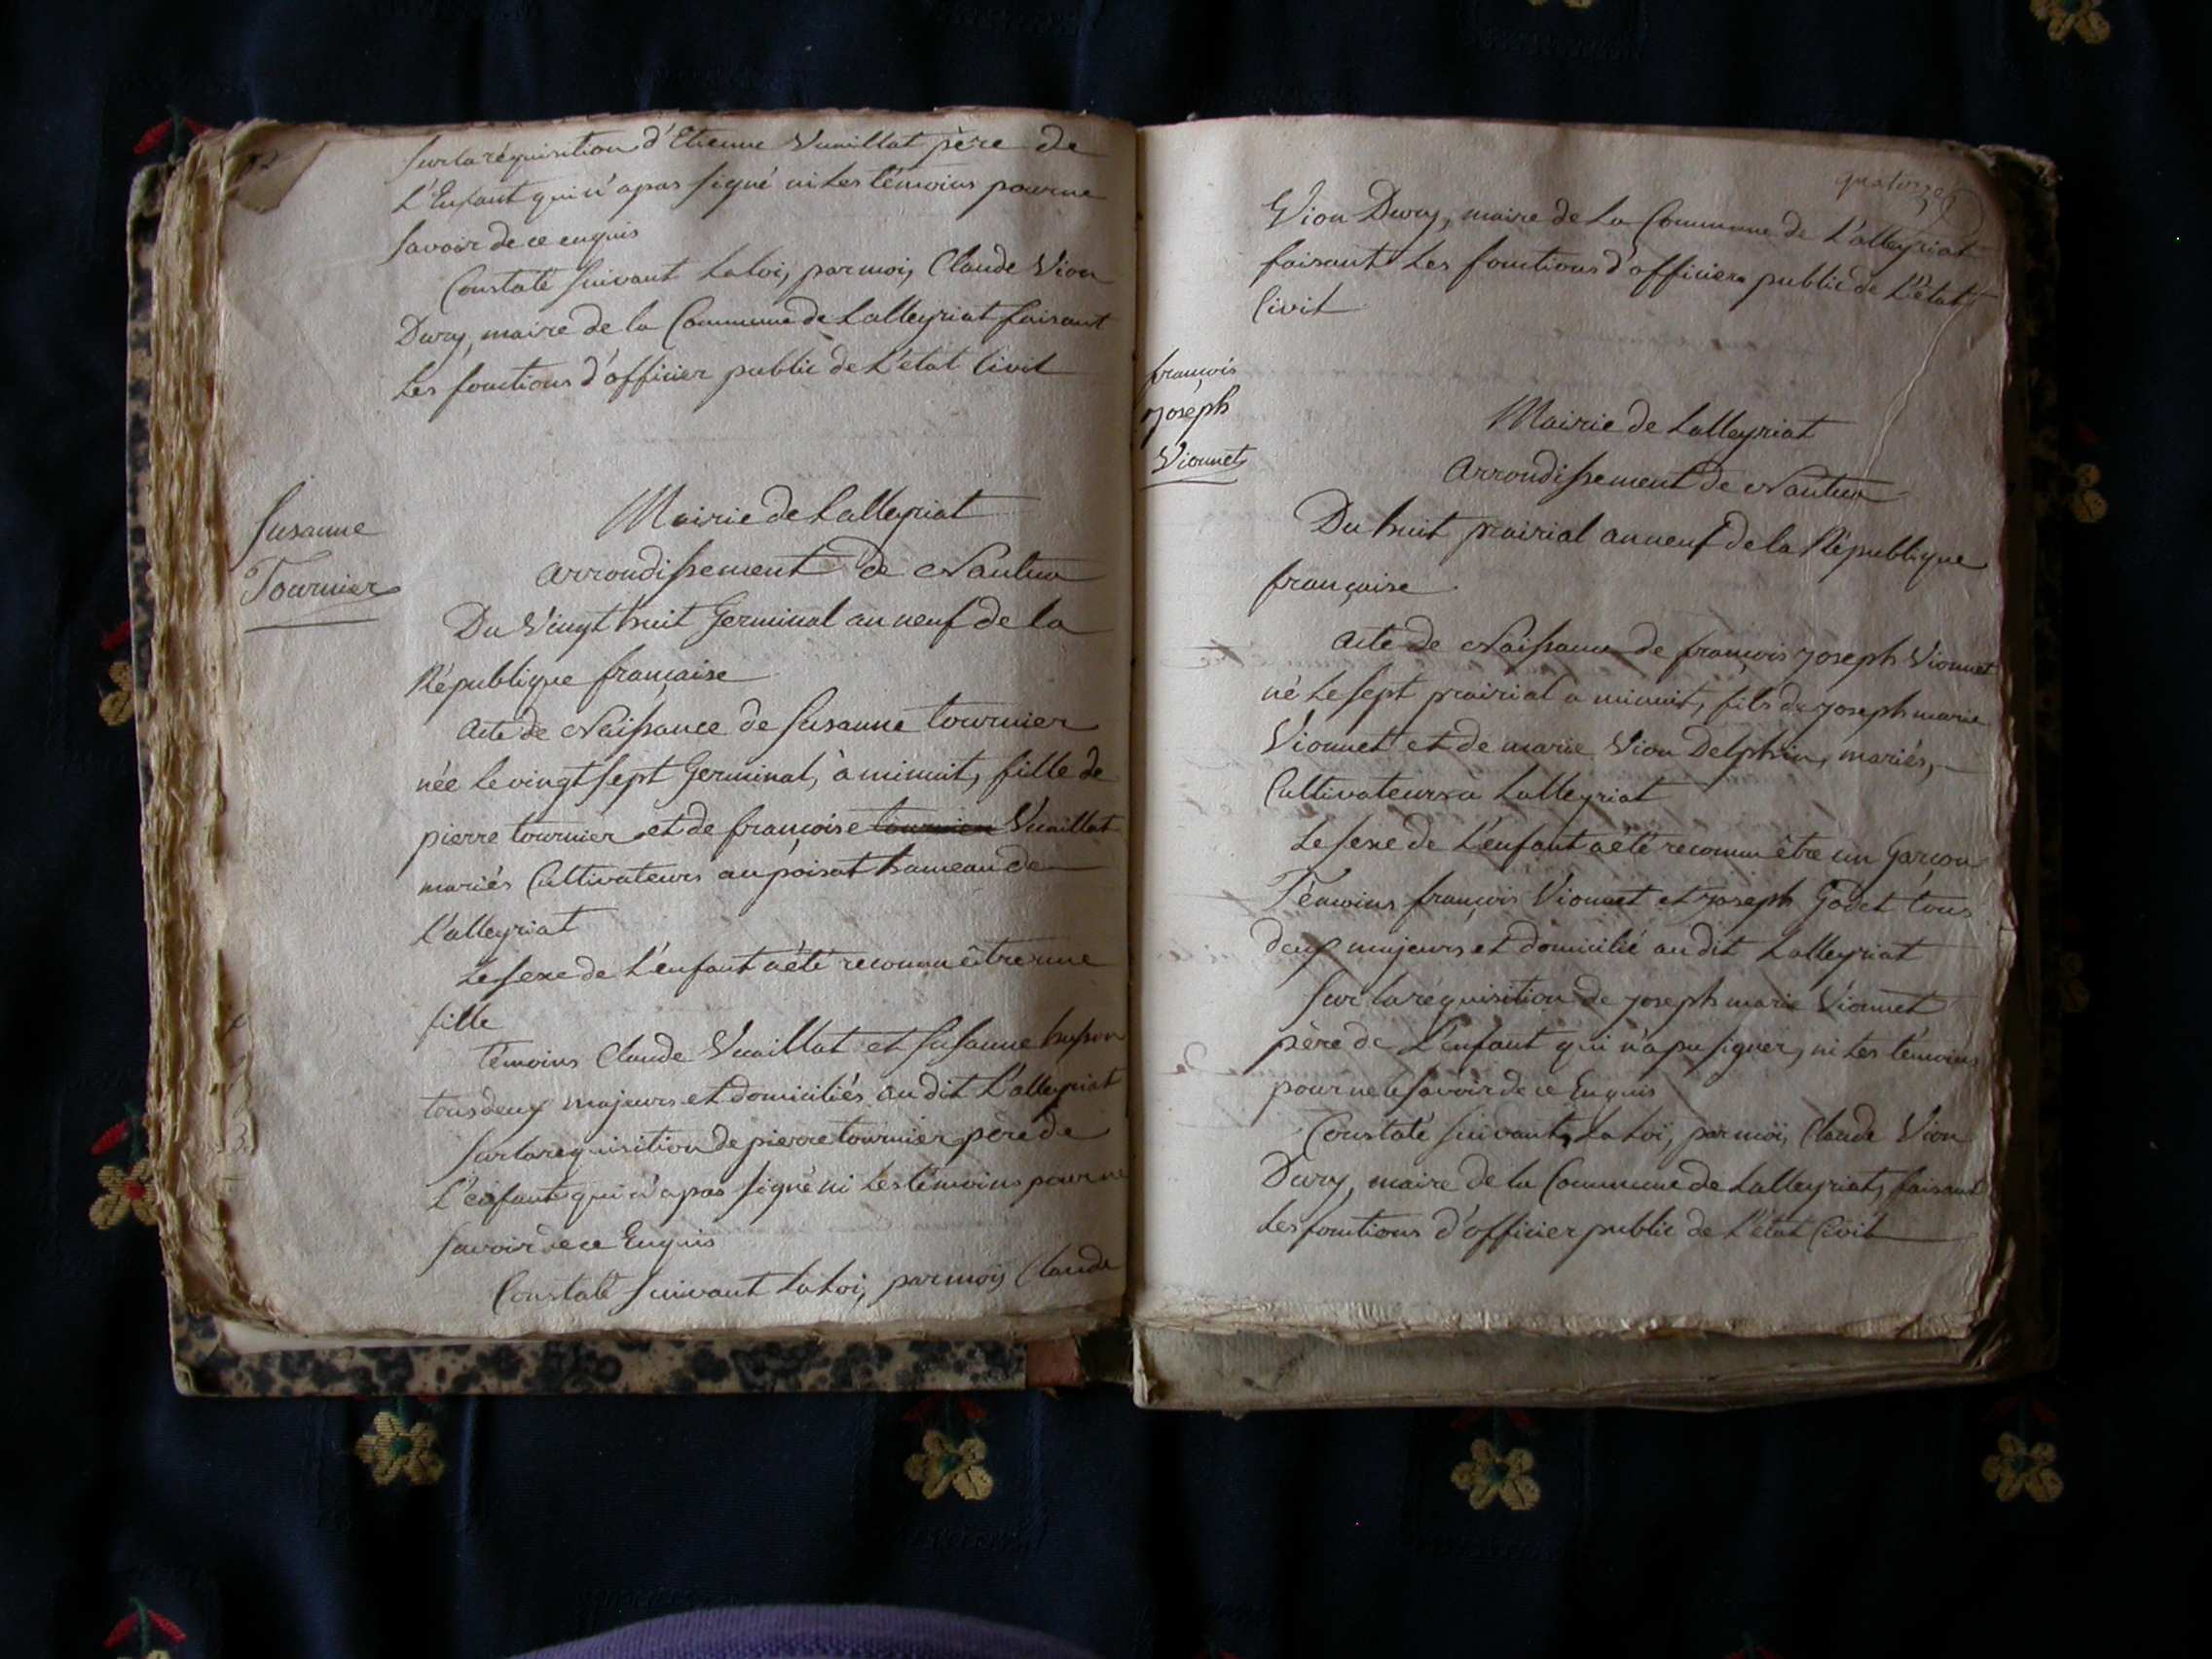 Sur la réquisition d'Etienne Vuaillat père de
L'Enfant qui n'a pas signé ni Les témoins pour ne
Savoir de ce enquis
Constaté Suivant La Loi, par moi, Claude Vion
Dury, maire de la Commune de Lalleyriat faisant
Les fonctions d'officier public de L'état Civil
Susanne
Tournier
Mairie de Lalleyriat
arrondissement de Nantua
Du Vingt huit Germinal an neuf de la
République française
acte de Naissance de Susanne tournier
née le vingt sept Germinal, à minuit, fille de
pierre tournier et de françoise tournier Vuaillat
mariés Cultivateurs au poisat hameau de
L'alleyriat
Le sexe de L'enfant a été reconnu être une
fille
Témoins Claude Vuaillat et Susanne
tous deux majeurs et domiciliés au dit L'alleyriat
Sur la requisition de pierre tournier père de
L'enfant qui n'a pas signé ni Les témoins pour ne
Savoir de ce Enquis
Constaté Suivant La Loi, par moi, Claude
quatorze
Vion Dury, maire de La Commune de L'alleyriat
faisant Les fonctions d'officier public de L'état
Civil
françois
joséph
Vionnet
Mairie de Lalleyriat
arrondissement de Nantua
Du huit prairial an neuf de la République
française
acte de Naissance de françois joseph Vionnet
né Le sept prairial a minuit, fils de joseph marie
Vionnet et de marie Vion Delphin, mariés,
Cultivateurs a Lalleyriat
Le sexe de L'enfant a été reconnu être un Garçon
Témoins françois Vionnet et joseph Godet tous
deux majeurs et domicilié au dit Lalleyriat
Sur la réquisition de joseph marie Vionnet
père de L'enfant qui n'a pu signer, ni Les témoins
pour ne le Savoir de ce Enquis
Constaté Suivant La Loi, par moi, Claude Vion
Dury, maire de la Commune de Lalleyriat, faisant
Les fonctions d'officier public de L'état Civil